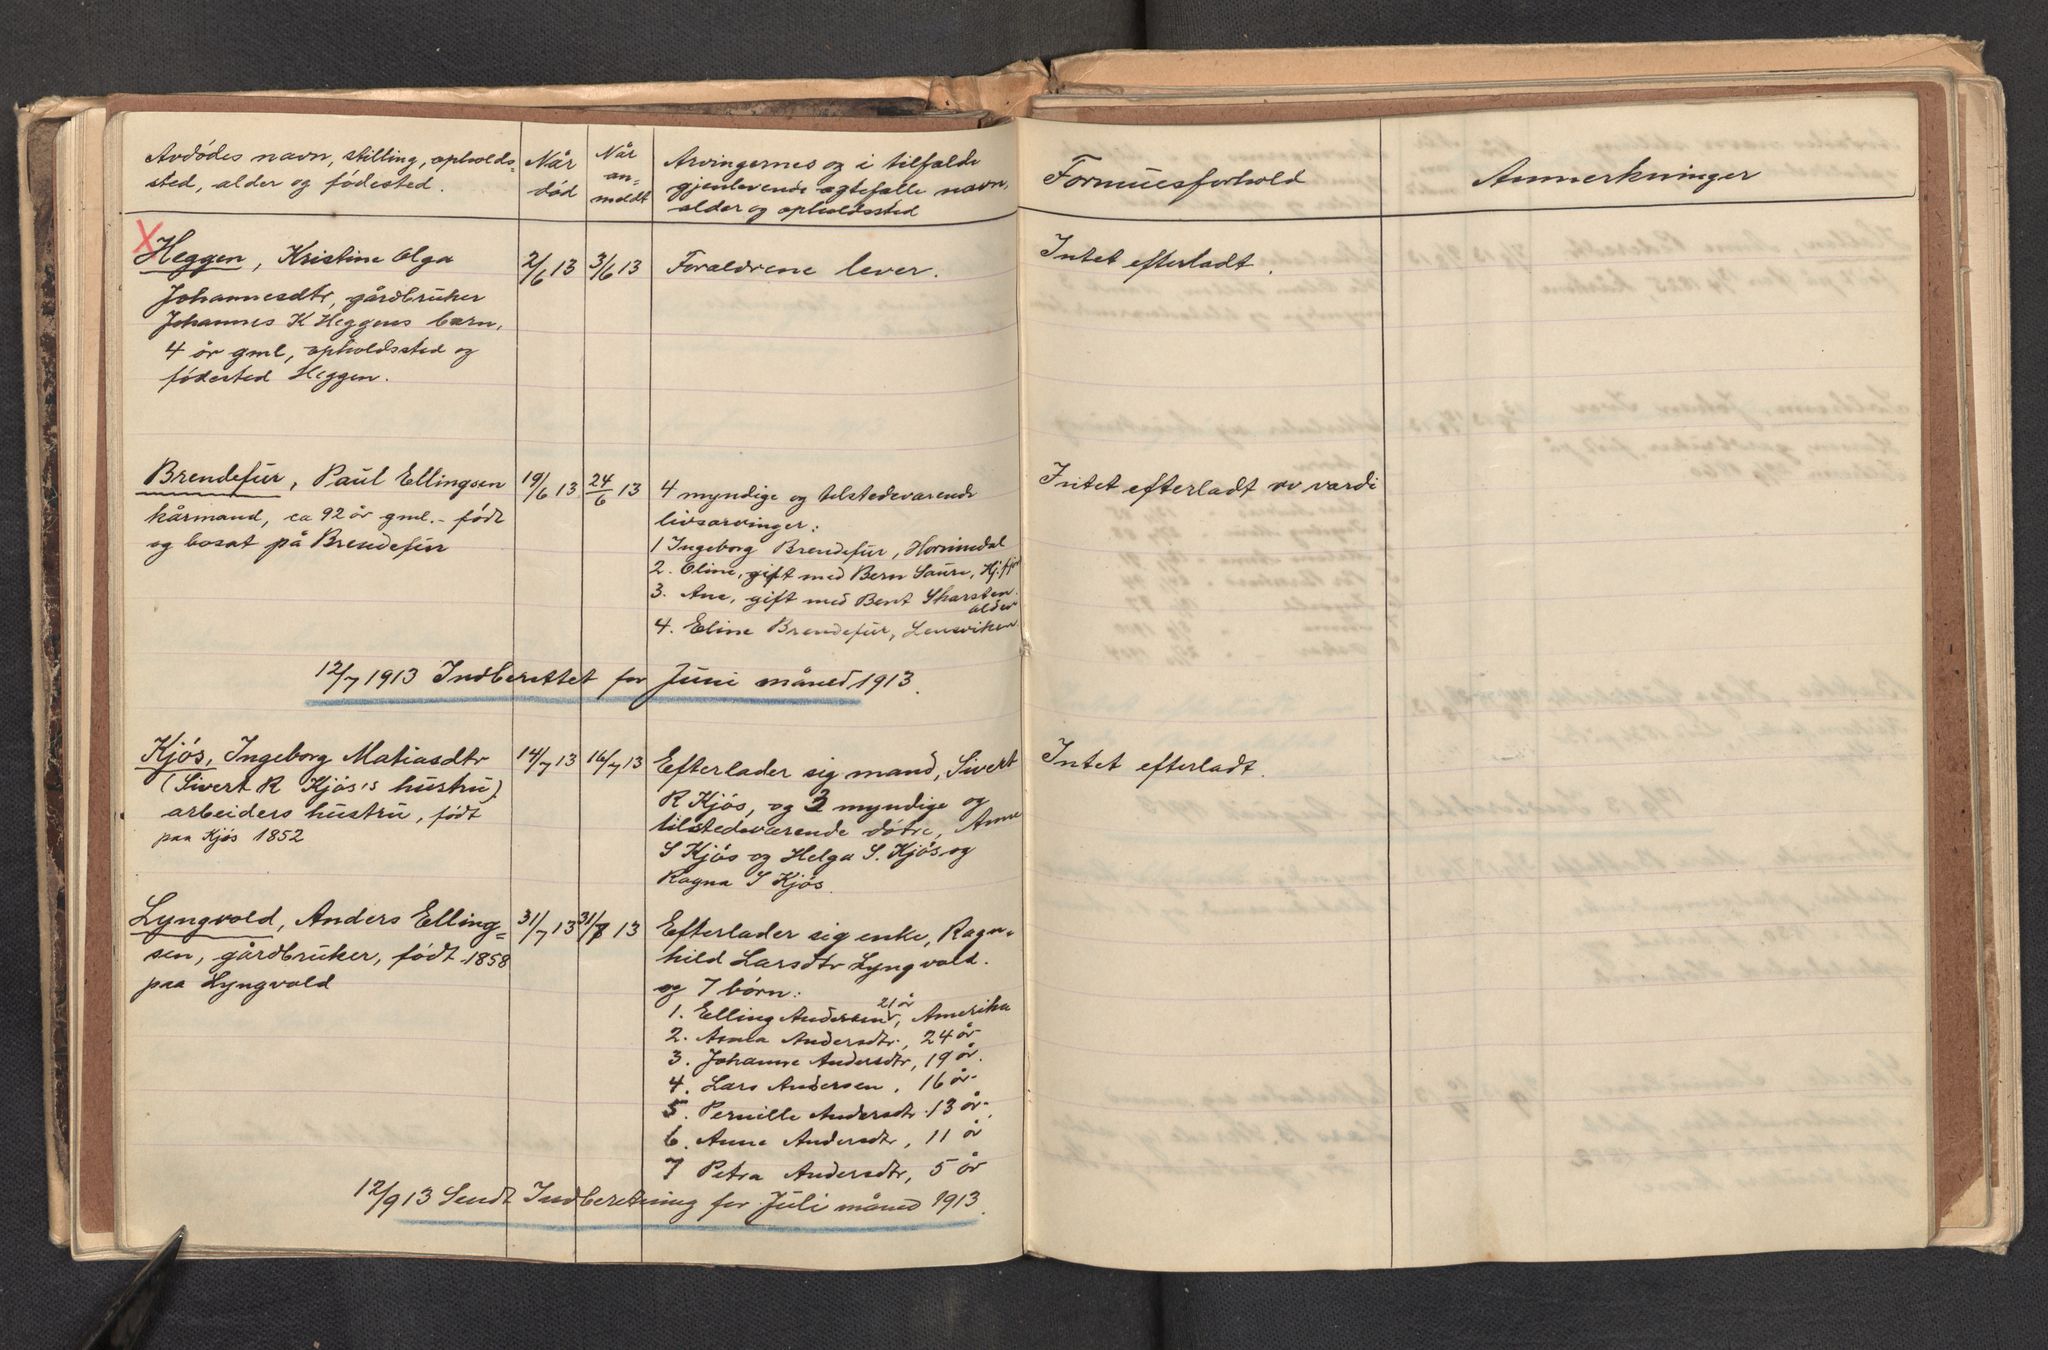 Avdödes navn, stilling, opholds-
sted, alder og födested.
Når
död
Når
an-
meldt
Arvingernes og i tilfælde
gjenlevende ægtefælle navn,
alder og opholdssted
Formuesforhold
Anmerkninger
X
Heggen, Kristine Olga
Johannesdtr, gårdbruker
Johannes K Heggens barn,
4 år gml, opholdssted og
födested Heggen.
2/6 13
3/6 13
Forældrene lever.
Intet efterladt.
Brendefur, Paul Ellingsen
kårmand, ca 92 år gml. - födt
og bosat på Brendefur
19/6 13
24/6 13
4 myndige og tilstedeværende
livsarvinger:
1 Ingeborg Brendefur, Hornindal
2. Oline, gift med Bern Saure, Kj.fjor
3. Ane, gift med Bent Skarsten
4. Eline Brendefur, Lensviken
Intet efterladt av værdi
12/7 1913 Indberettet for Juni måned 1913.
Kjös, Ingeborg Matiasdtr
(Sivert R Kjös's hustru)
arbeiders hustru, födt
paa Kjös 1852
14/7 13
16/7 13
Efterlader sig mand, Sivert
R Kjös, og 3 myndige og
tilstedeværende dötre, Anne
S Kjös og Helga S. Kjös og
Ragna S Kjös.
Intet efterladt.
Lyngvold, Anders Elling-
sen, gårdbruker, födt 1858
paa Lyngvold
31/7 13
31/8 13
Efterlader sig enke, Ragn-
hild Larsdtr Lyngvold.
og 7 börn:
1. Elling Andersen, 21 år, Amerika
2. Anna Andersdtr, 24 år
3. Johanne Andersdtr, 19 år.
4. Lars Andersen, 16 år.
5. Pernille Andersdtr. 13 år.
6. Anne Andersdtr, 11 år
7 Petra Andersdtr, 5 år
12/9 13 Sendt Indberetning for Juli måned 1913.